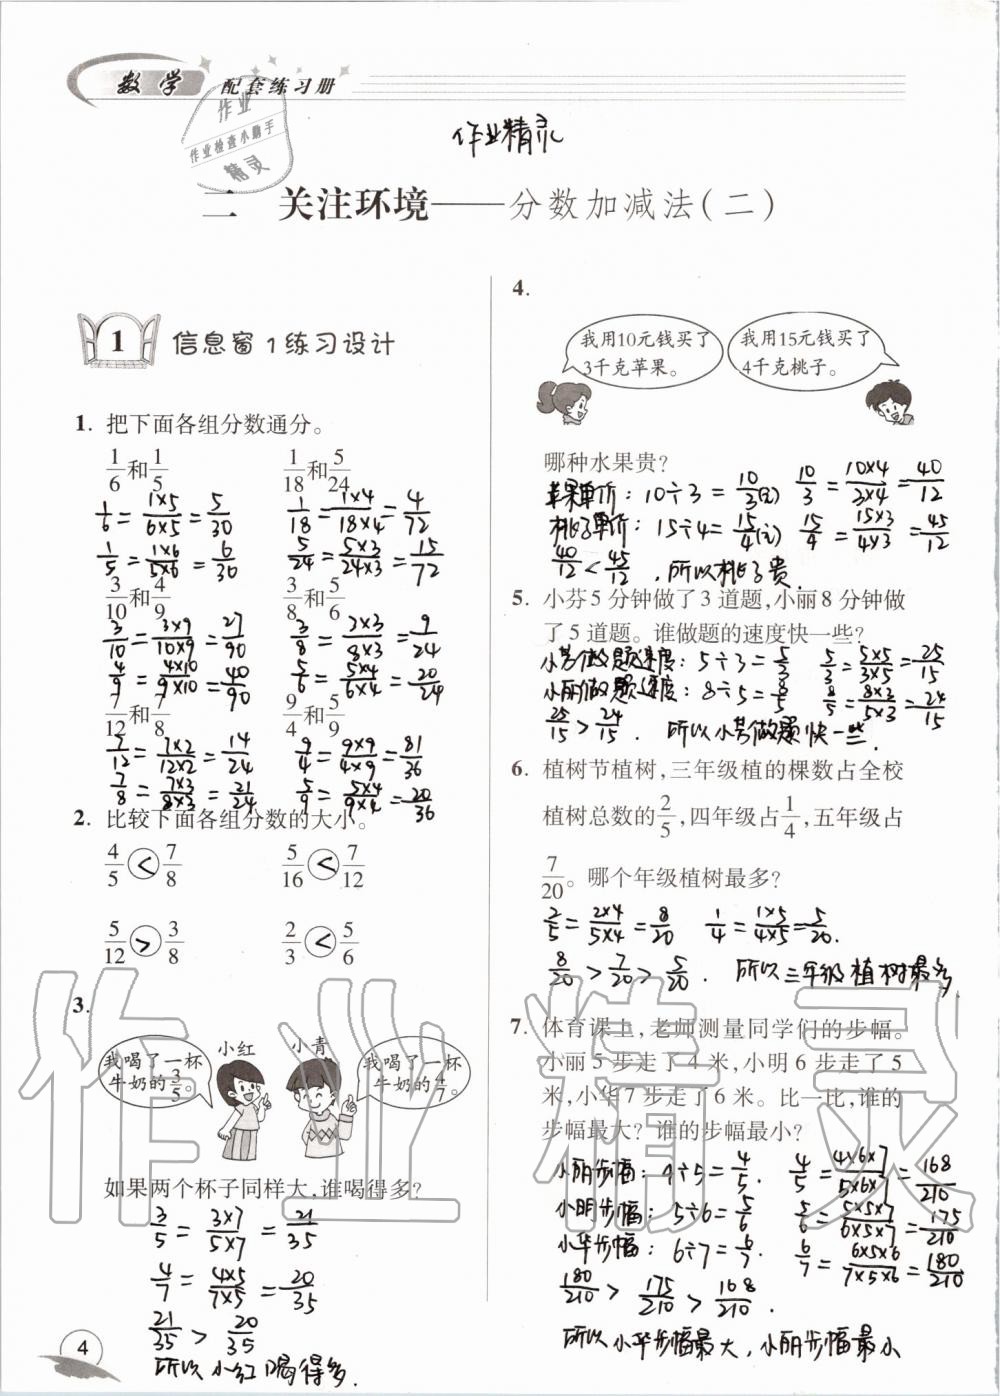 数学 配套练习册
作业
作业检查小助手
精灵
作业精灵
二 关注环境——分数加减法(二)
1 信息窗1练习设计
1. 把下面各组分数通分。
1/6和1/5 1/18和5/24
1/6=1×5/6×5=5/30 1/18=1×4/18×4=4/72
1/5=1×6/5×6=6/30 5/24=5×3/24×3=15/72
3/10和4/9 3/8和5/6
3/10=3×9/10×9=27/90 3/8=3×3/8×3=9/24
4/9=4×10/9×10=40/90 5/6=5×4/6×4=20/24
7/12和7/8 9/4和5/9
7/12=7×2/12×2=14/24 9/4=9×9/4×9=81/36
7/8=7×3/8×3=21/24 5/9=5×4/9×4=20/36
2. 比较下面各组分数的大小。
4/5<7/8 5/16<7/12
5/12>3/8 2/3<5/6
3.
我喝了一杯
牛奶的3/5。
小红
小青
我喝了一杯
牛奶的4/7。
如果两个杯子同样大,谁喝得多?
3/5=3×7/5×7=21/35
4/7=4×5/7×5=20/35
21/35>20/35
所以小红喝得多.
4
4.
我用10元钱买了
3千克苹果。
我用15元钱买了
4千克桃子。
哪种水果贵?
苹果单价:10÷3=10/3(元) 10/3=10×4/3×4=40/12
桃子单价:15÷4=15/4(元) 15/4=15×3/4×3=45/12
40/12<45/12,所以桃子贵.
5. 小芬5分钟做了3道题,小丽8分钟做
了5道题。谁做题的速度快一些?
小芬做题速度:5÷3=5/3 5/3=5×5/3×5=25/15
小丽做题速度:8÷5=8/5 8/5=8×3/5×3=24/15
25/15>24/15. 所以小芬做题快一些.
6. 植树节植树,三年级植的棵数占全校
植树总数的2/5,四年级占1/4,五年级占
7/20。哪个年级植树最多?
2/5=2×4/5×4=8/20 1/4=1×5/4×5=5/20.
8/20>7/20>5/20. 所以三年级植树最多.
7. 体育课上,老师测量同学们的步幅。
小丽5步走了4米,小明6步走了5
米,小华7步走了6米。比一比,谁的
步幅最大?谁的步幅最小?
小丽步幅:4÷5=4/5. 4/5=4×6×7/5×6×7=168/210
小明步幅:5÷6=5/6 5/6=5×5×7/6×5×7=175/210
小华步幅:6÷7=6/7. 6/7=6×5×6/7×5×6=180/210
180/210>175/210>168/210.
所以小华步幅最大,小丽步幅最小
作业精灵